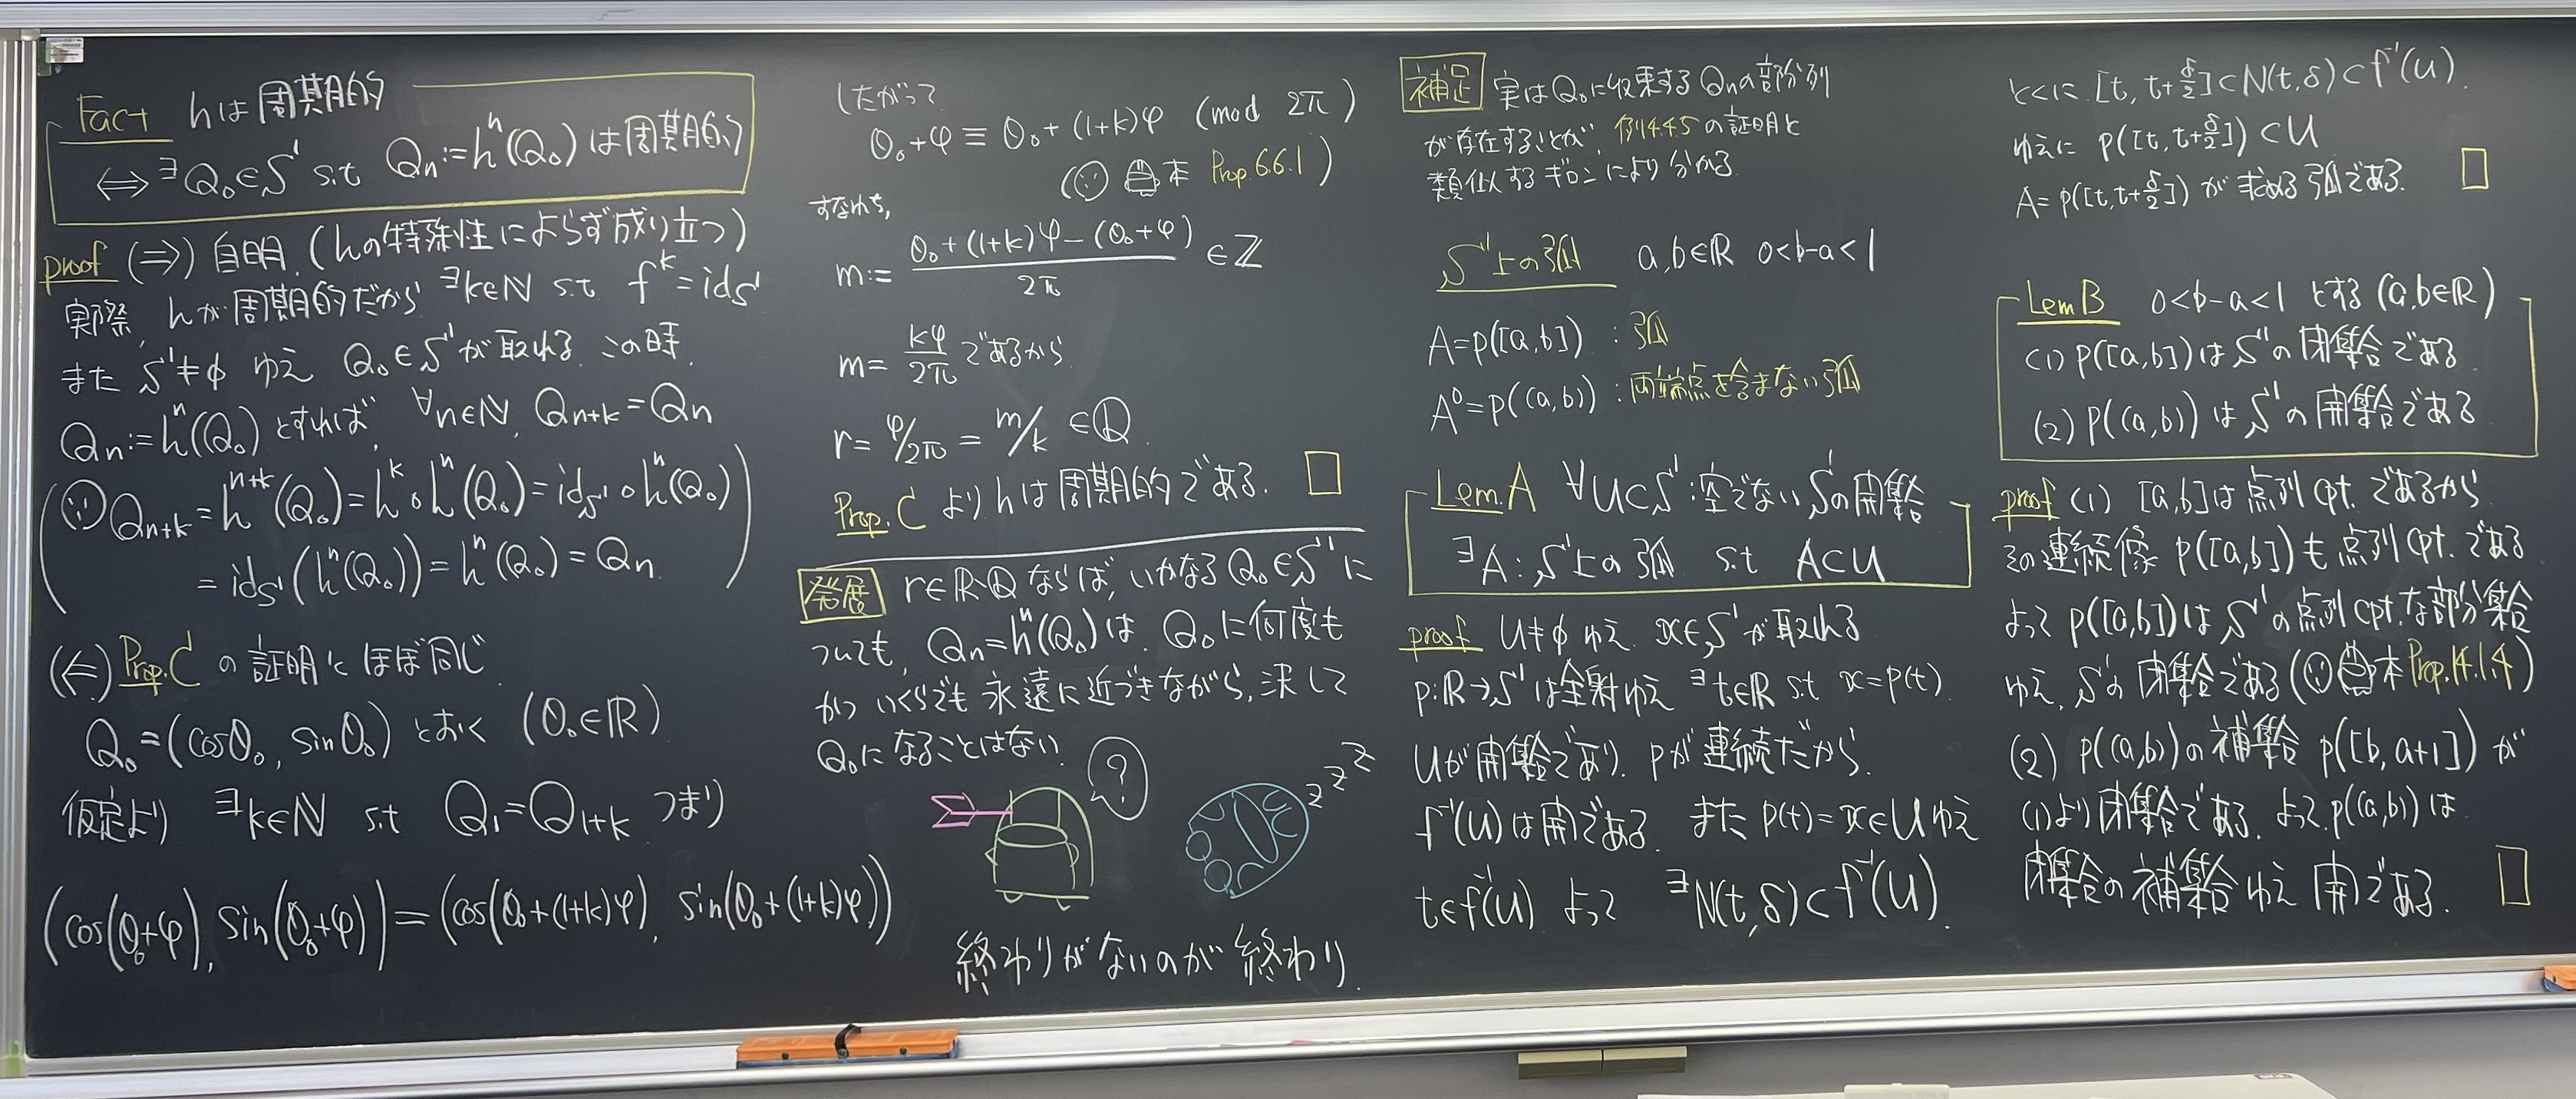 Fact hは周期的
⟺ ∃Q₀∈S¹ s.t Qn:=hⁿ(Q₀)は周期的
proof (⇒) 自明.(hの特殊性によらず成り立つ)
実際, hが周期的だから ∃k∈ℕ s.t fᵏ=id_S¹
また S¹≠∅ ゆえ Q₀∈S¹が取れる. この時,
Qn:=hⁿ(Q₀)とすれば, ∀n∈ℕ, Qn+k=Qn
Qn+k=hⁿ⁺ᵏ(Q₀)=hᵏ∘hⁿ(Q₀)=id_S¹∘hⁿ(Q₀)
=id_S¹(hⁿ(Q₀))=hⁿ(Q₀)=Qn.
(⇐) Prop.C の証明とほぼ同じ
Q₀=(cosθ₀, sinθ₀) とおく (θ₀∈ℝ)
仮定より ∃k∈ℕ s.t Q₁=Q₁₊k つまり
(cos(θ₀+φ), sin(θ₀+φ))=(cos(θ₀+(1+k)φ), sin(θ₀+(1+k)φ))
したがって
θ₀+φ≡θ₀+(1+k)φ (mod 2π)
(本 Prop.6.6.1)
すなわち,
m:= (θ₀+(1+k)φ-(θ₀+φ))/2π ∈ℤ
m= kφ/2π であるから
r= φ/2π = m/k ∈ℚ.
Prop.C よりhは周期的である. □
発展 r∈ℝ-ℚ ならば, いかなるQ₀∈S¹に
ついても, Qn=hⁿ(Q₀)は, Q₀に何度も
かついくらでも永遠に近づきながら, 決して
Q₀になることはない.
?
zzz
終わりがないのが終わり.
補足 実はQ₀に収束するQnの部分列
が存在することが, 例14.4.5の証明と
類似するギロンにより分かる.
S¹上の弧 a,b∈ℝ 0<b-a<1
A=p([a,b]) : 弧
A⁰=p((a,b)) : 両端点を含まない弧
Lem.A ∀U⊂S¹:空でないS¹の開集合
∃A:S¹上の弧 s.t A⊂U
proof U≠∅ ゆえ x∈S¹が取れる
p:ℝ→S¹は全射ゆえ ∃t∈ℝ s.t x=p(t).
Uが開集合であり, pが連続だから,
f⁻¹(U)は開である. また p(t)=x∈Uゆえ
t∈f⁻¹(U) よって ∃N(t,δ)⊂f⁻¹(U).
とくに [t, t+δ/2]⊂N(t,δ)⊂f⁻¹(U).
ゆえに p([t,t+δ/2])⊂U
A=p([t,t+δ/2]) が求める弧である. □
Lem B 0<b-a<1 とする (a,b∈ℝ)
(1) p([a,b])はS¹の閉集合である
(2) p((a,b))はS¹の開集合である
proof (1) [a,b]は点列cpt. であるから
その連続像 p([a,b])も点列cpt. である
よって p([a,b])は S¹の点列cpt.な部分集合
ゆえ, S¹の閉集合である(本Prop.14.1.4)
(2) p((a,b))の補集合 p([b,a+1])が
(1)より閉集合である. よってp((a,b))は
閉集合の補集合ゆえ開である. □